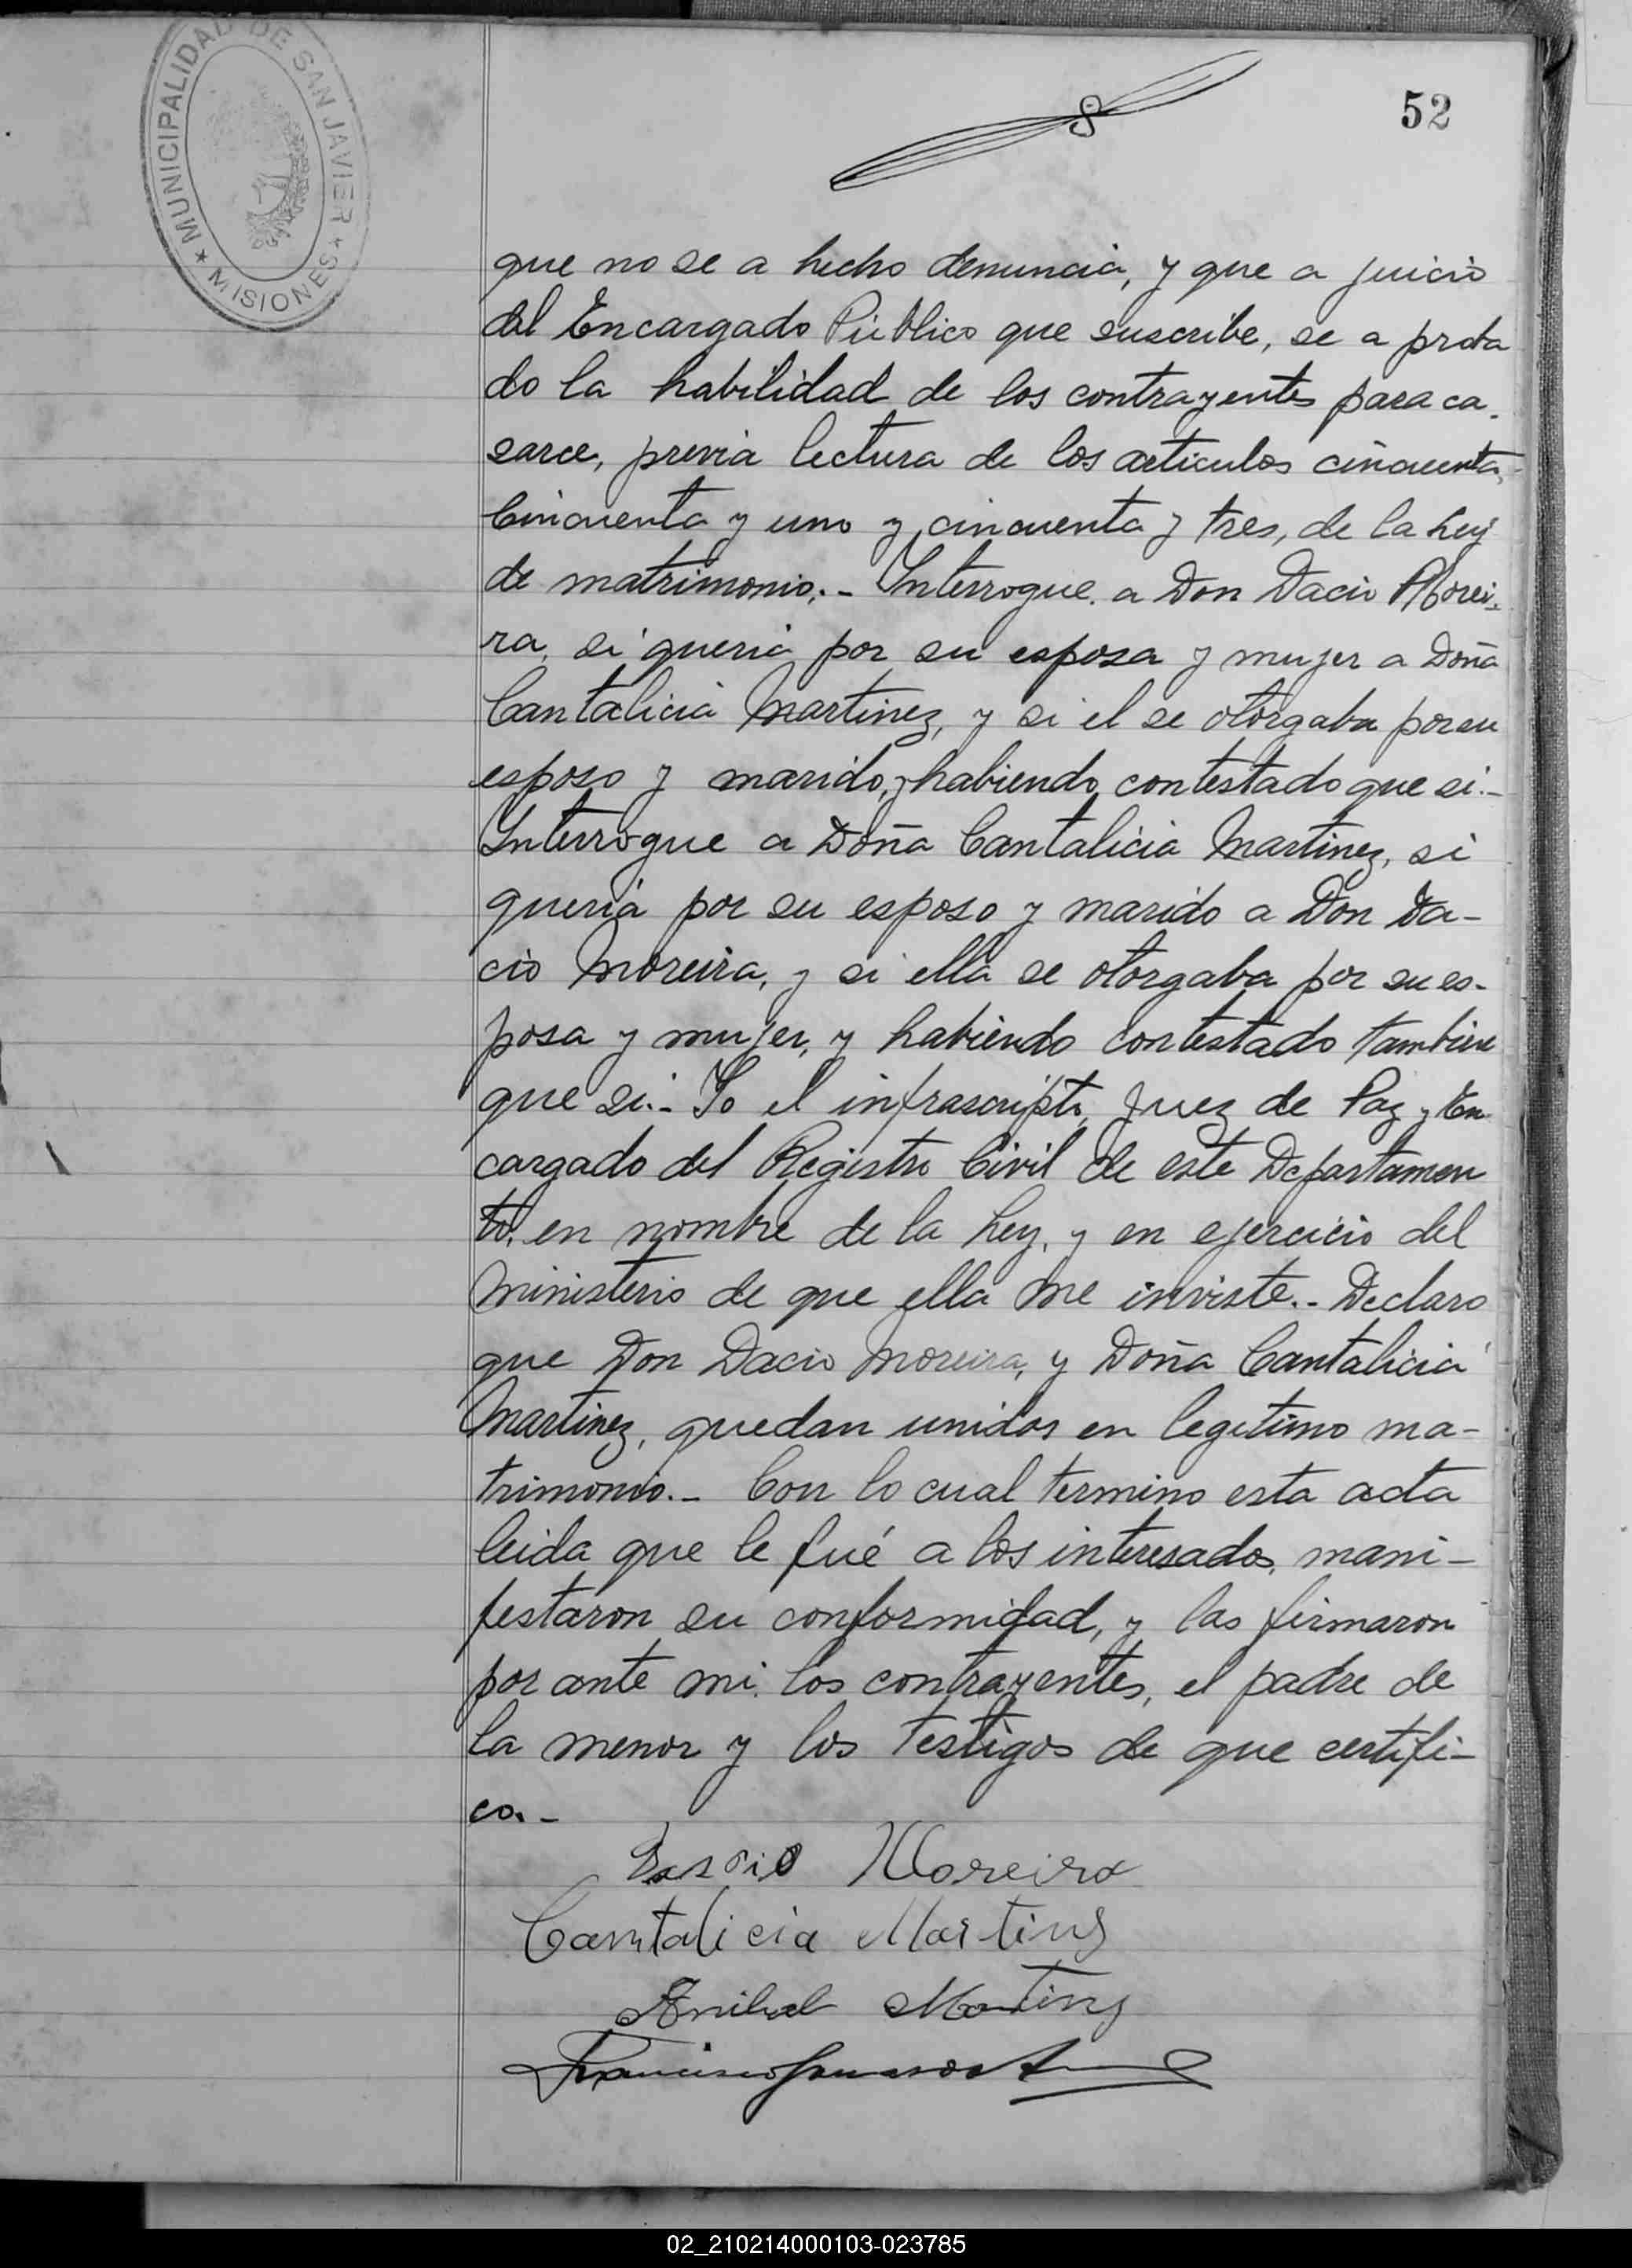 MUNICIPALIDAD DE SAN JAVIER
★ MISIONES ★
52
que no se a hecho denuncia, y que a juicio
del Encargado Público que suscribe, se a proba
do la habilidad de los contrayentes para ca-
sarce, previa lectura de los articulos cincuenta,
Cincuenta y uno y cincuenta y tres, de la Ley
de matrimonio.- Interrogue a Don Dacio Morei-
ra, si queria por su esposa y mujer a Doña
Cantalicia Martinez, y si el se otorgaba por su
esposo y marido, y habiendo contestado que si.-
Interrogue a Doña Cantalicia Martinez, si
queria por su esposo y marido a Don Da-
cio Moreira, y si ella se otorgaba por su es-
posa y mujer, y habiendo contestado tambien
que si.- Yo el infrascripto, Juez de Paz y En
cargado del Registro Civil de este Departamen
to, en nombre de la Ley, y en ejercicio del
Ministerio de que ella me inviste.- Declaro
que Don Dacio Moreira, y Doña Cantalicia
Martinez, quedan unidos en legitimo ma-
trimonio.- Con lo cual termino esta acta
leida que le fué a los interesados, mani-
festaron su conformidad, y las firmaron
por ante mi los contrayentes, el padre de
la menor y los testigos de que certifi-
co.-
Dascio Moreira
Cantalicia Martins
Anibal Martins
Francisco
02_210214000103-023785